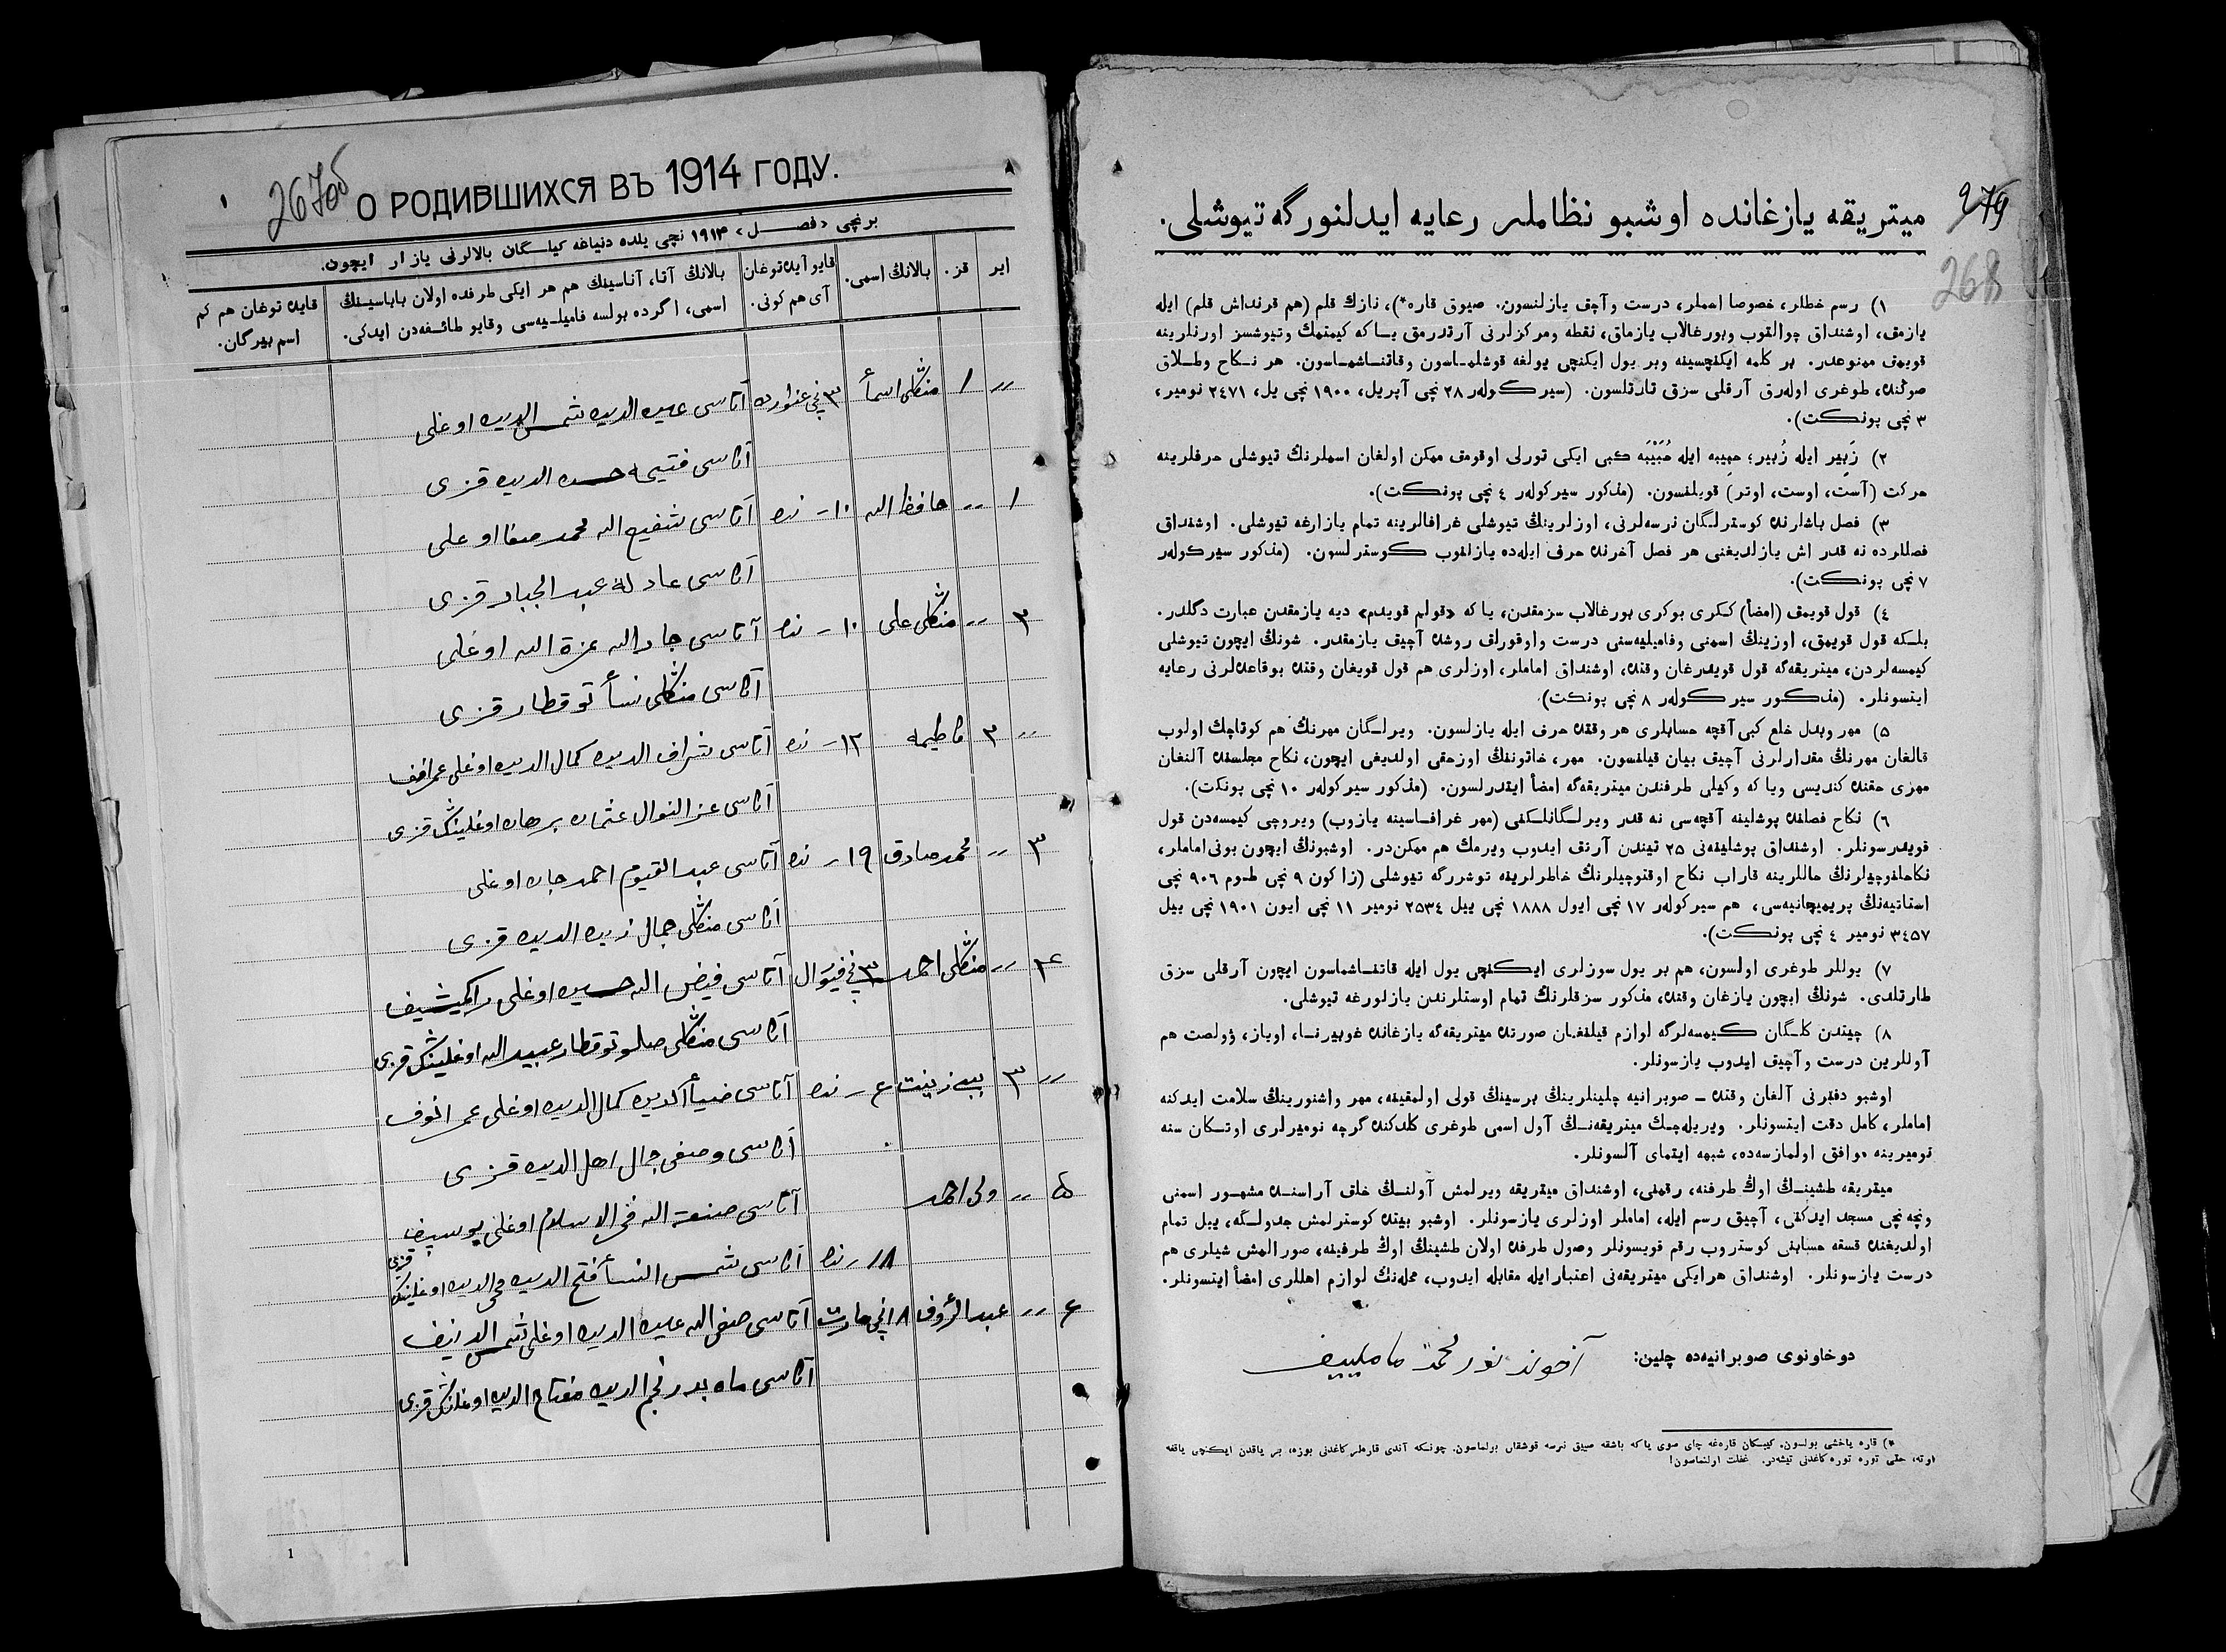 267об
О РОДИВШИХСЯ ВЪ 1914 ГОДУ.
برنچی «فصـــــل» ١٩١٣ نچی يلده دنياغه كيلـگان بالالرنی يازار ايچون.
اير
قز.
بالانڭ اسمی.
قايو آيده توغان آی هم كونی.
بالانڭ آتا، آناسينڭ هم هر ايكی طرفده اولان باباسينڭ اسمی، اگرده بولسه فاميليهسی وقايو طائفهدن ايدكی.
قايده توغان هم كم اسم بيرگان.
,, ١ منكلی اسمأ ٣ نچی غنوارده آتاسی عين الدين شمس الدين اوغلی
آناسی فتيحه حسن الدين قزی
١ ,, حافظ الله ١٠ - نده آتاسی شفيع الله محمد صفا اوغلی
آناسی عادله عبد الجبار قزی
٢ ,, منكلی علی ١٠ - نده آتاسی جار الله عزة الله اوغلی
آناسی منكلی نسأ توقطار قزی
,, ٢ فاطيمه ١٢ - نده آتاسی شراف الدين كمال الدين اوغلی
آناسی عز النوال عثمان برهان اوغلينڭ قزی
٣ ,, محمد صادق ١٩ - نده آتاسی عبد القيوم احمد جان اوغلی
آناسی منكلی جمال زين الدين قزی
٤ ,, منكلی احمد ٣ نچی فيوال آتاسی فيض الله حسين اوغلی
آناسی منكلی صلو توقطار عبيد الله اوغلينڭ قزی
,, ٣ بيبی زينت ٤ - نده آتاسی ضيأ الدين كمال الدين اوغلی عمرانوف
آناسی وصفی جمال اهل الدين قزی
٥ ,, ولی احمد آتاسی صنعة الله فخر الاسلام اوغلی يوسيف
١٨ - نده آناسی شمس النسأ فتح الدين محی الدين اوغلينڭ قزی
٦ ,, عبد الرؤف ٨ نچی مارت آتاسی صفی الله عين الدين اوغلی شمس الدينف
آناسی ماه بدر نجم الدين مفتاح الدين اوغلينڭ قزی
1
279
268
ميتريقه يازغانده اوشبو نظاملر رعايه ايدلنورگه تيوشلی.
١) رسم خطلر، خصوصا اسملر، درست وآچق يازلنسون. صيوق قاره*)، نازك قلم (هم قرنداش قلم) ايله
يازمق، اوشنداق چوالقوب وبورغالاب يازماق، نقطه ومركزلرنی آرتدرمق يـاكه كيمتمك وتيوشسز اورنلرينه
قويمق ممنوعدر. بر كلمه ايكنچسينه وبر يول ايكنچی يولغه قوشلمـاسون وقاتنـاشمـاسون. هر نـكاح وطـلاق
صوڭنده، طوغری اولهرق آرقلی سزق تارتلسون. (سيركولهر ٢٨ نچی آپريل، ١٩٠٠ نچی يل، ٢٤٧١ نومير،
٣ نچی پونكت).
٢) زَبِير ايله زُبير؛ حبيبه ايله حُبَيْبَه كبی ايكی تورلی اوقومق ممكن اولغان اسملرنڭ تيوشلی حرفلرينه
حركت (آست، اوست، اوتر) قويلنسون. (مذكور سيركولهر ٤ نچی پونكت).
٣) فصل باشلرنده كوسترلـگان نرسهلرنی، اوزلرينڭ تيوشلی غرافالرينه تمام يازارغه تيوشلی. اوشنداق
فصللرده نه قدر اش يازلديغنی هر فصل آخرنده حرف ايلهده يازلنوب كوسترلسون. (مذكور سيركولهر
٧ نچی پونكت).
٤) قول قويمق (امضأ) ككری بوكری بورغالاب سزمقدن، ياكه «قولم قويدم» ديه يازمقدن عبارت دگلدر.
بلـكه قول قويمق، اوزينڭ اسمنی وفاميليهسنی درست واوقورلق روشده آچيق يازمقدر. شونڭ ايچون تيوشلی
كيمسهلردن، ميتريقهگه قول قويدرغان وقتده، اوشنداق اماملر، اوزلری هم قول قويغان وقتده بوقاعدهلرنی رعايه
ايتسونلر. (مذكور سيركولهر ٨ نچی پونكت).
٥) مهر وبدل خلع كبی آقچه حسابلری هر وقتده حرف ايله يازلسون. ويرلـگان مهرنڭ هم كوقاچك اولوب
قالغان مهرنڭ مقدارلرنی آچيق بيان قيلنسون. مهر، خاتوننڭ اوزحقی اولديغی ايچون، نكاح مجلسنده آلنغان
مهری حقنده كنديسی وياكه وكيلی طرفندن ميتريقهگه امضأ ايتدرلسون. (مذكور سيركولهر ١٠ نچی پونكت).
٦) نكاح فصلنده پوشلينه آقچهسی نه قدر ويرلـگانلـكنی (مهر غرافـاسينه يازوب) ويروچی كيمسهدن قول
قويدرسونلر. اوشنداق پوشلينهنی ٢٥ تيندن آرتق ايدوب ويرمك هم ممكندر. اوشبونڭ ايچون بونی اماملر،
نكاحلنوچيلرنڭ حاللرينه قاراب نكاح اوقتوچيلرنڭ خاطرلرينه توشررگه تيوشلی (زاكون ٩ نچی طوم ٩٠٦ نچی
استاتيهنڭ پريميچانيهسی، هم سيركولهر ١٧ نچی ايول ١٨٨٨ نچی ييل ٢٥٣٤ نومير ١١ نچی ايون ١٩٠١ نچی ييل
٣٤٥٧ نومير ٤ نچی پونكت).
٧) يوللر طوغری اولسون، هم بر يول سوزلری ايـكنچی يول ايله قاتنـاشماسون ايچون آرقلی سزق
طارتلدی. شونڭ ايچون يازغان وقتده، مذكور سزقلرنڭ تمام اوستلرندن يازلورغه تيوشلی.
٨) چيتدن كلـگان كيمسهلرگه لوازم قيلنغان صورتده ميتريقهگه يازغانده غوبيرنـا، اوياز، ؤولصت هم
آوللرين درست وآچيق ايدوب يازسونلر.
اوشبو دفترنی آلغان وقتده – صوبرانيه چلينلرينڭ برسينڭ قولی اولمقينه، مهر واشنورينڭ سلامت ايدكنه
اماملر، كامل دقت ايتسونلر. ويريلهجك ميتريقهنـڭ آول اسمی طوغری كلدكنده گرچه نوميرلری اوتـكان سنه
نوميرينه موافق اولمازسهده، شبهه ايتمای آلسونلر.
ميتريقه طشينـڭ اوڭ طرفنه، رقمنی، اوشنداق ميتريقه ويرلمش آولنـڭ خلق آراسنـده مشهـور اسمنی
ونچه نچی مسجد ايدكنی، آچيق رسم ايله، اماملر اوزلری يازسونلر. اوشبو بيتده كوسترلمش جدولـگه، ييل تمام
اولديغنده قسقه حسابنی كوستروب رقم قويسونلر وصول طرفده اولان طشينڭ اوڭ طرفينه، صورالمش شيلری هم
درست يازسونلر. اوشنداق هرايكی ميتريقهنی اعتبار ايله مقابله ايدوب، محلهنڭ لوازم اهللری امضأ ايتسونلر.
دوخاونوی صوبرانيهده چلين: آخوند نور محمد مامليیف
*) قاره ياخشی بولسون. كيبكان قارهغه چای صوی ياكه باشقه صيق نرسه قوشقاں برلماسون. چونكه آندی قارهلر كاغدنی بوزه، بر ياقدن ايكنچی ياقغه
اوته، حتی توره توره كاغدنی تيشهدر. غفلت اولنماسون!